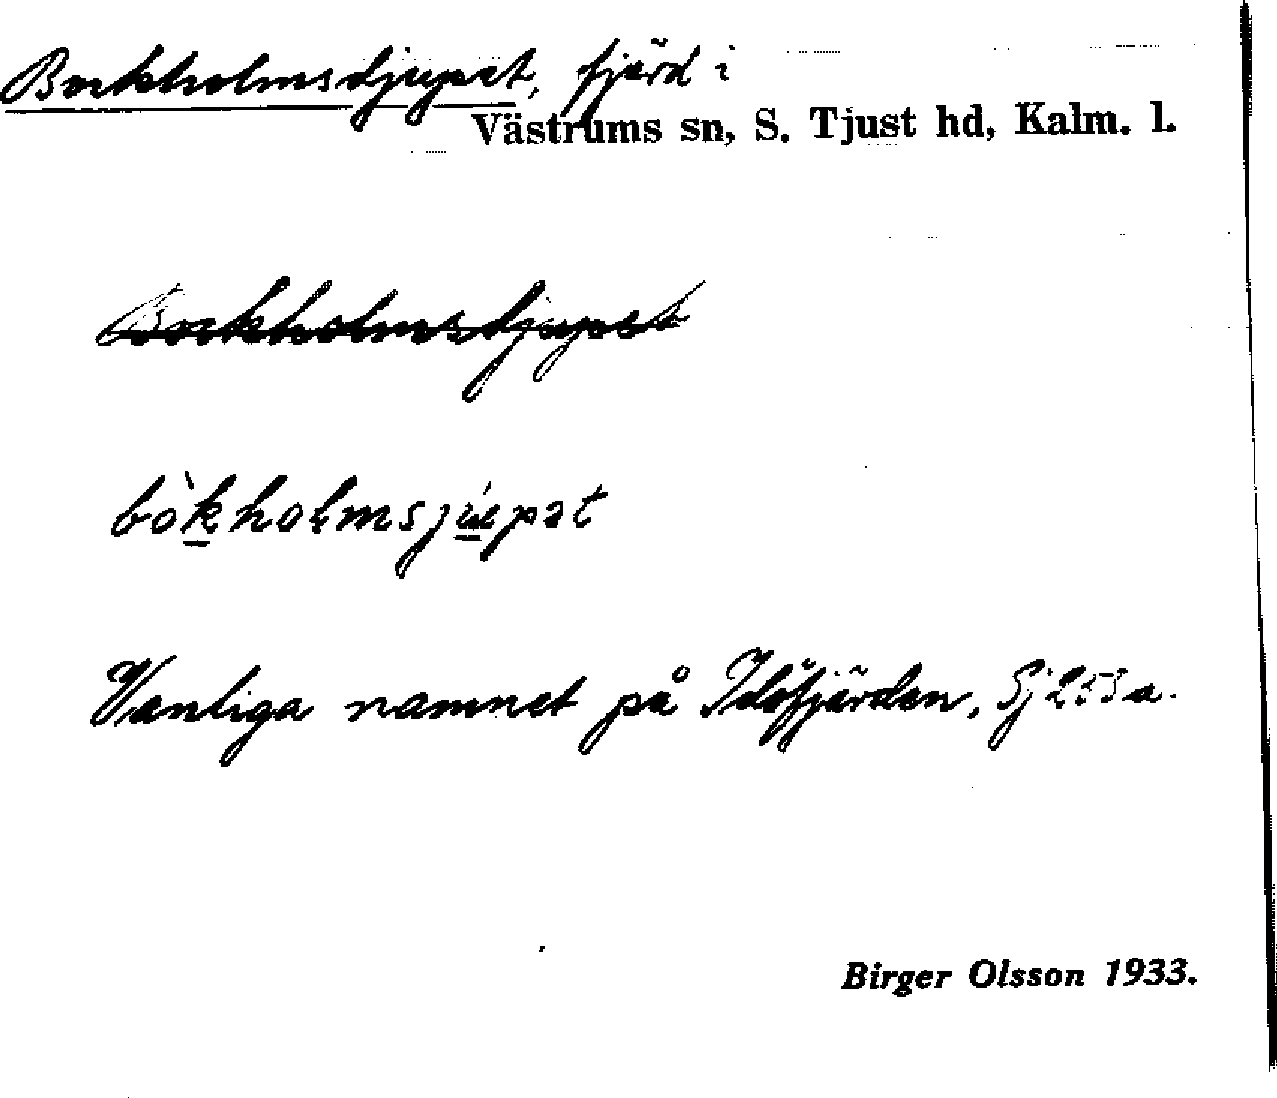 Bockholmsdjupet, fjärd i
Västrums sn, S. Tjust hd, Kalm. l.
Bockholmsdjupet
bòkholmsjúpət
Vanliga namnet på Idöfjärden, Sj 253 a.
Birger Olsson 1933.